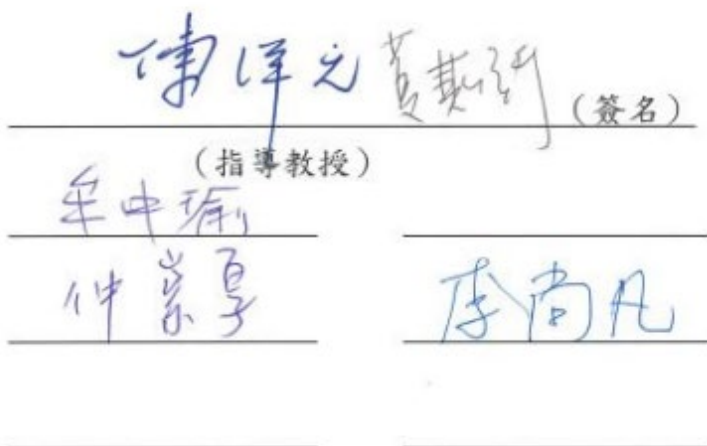 陳洋元 黃斯衍 (簽名)
(指導教授)
牟中瑜
仲崇厚 李尚凡